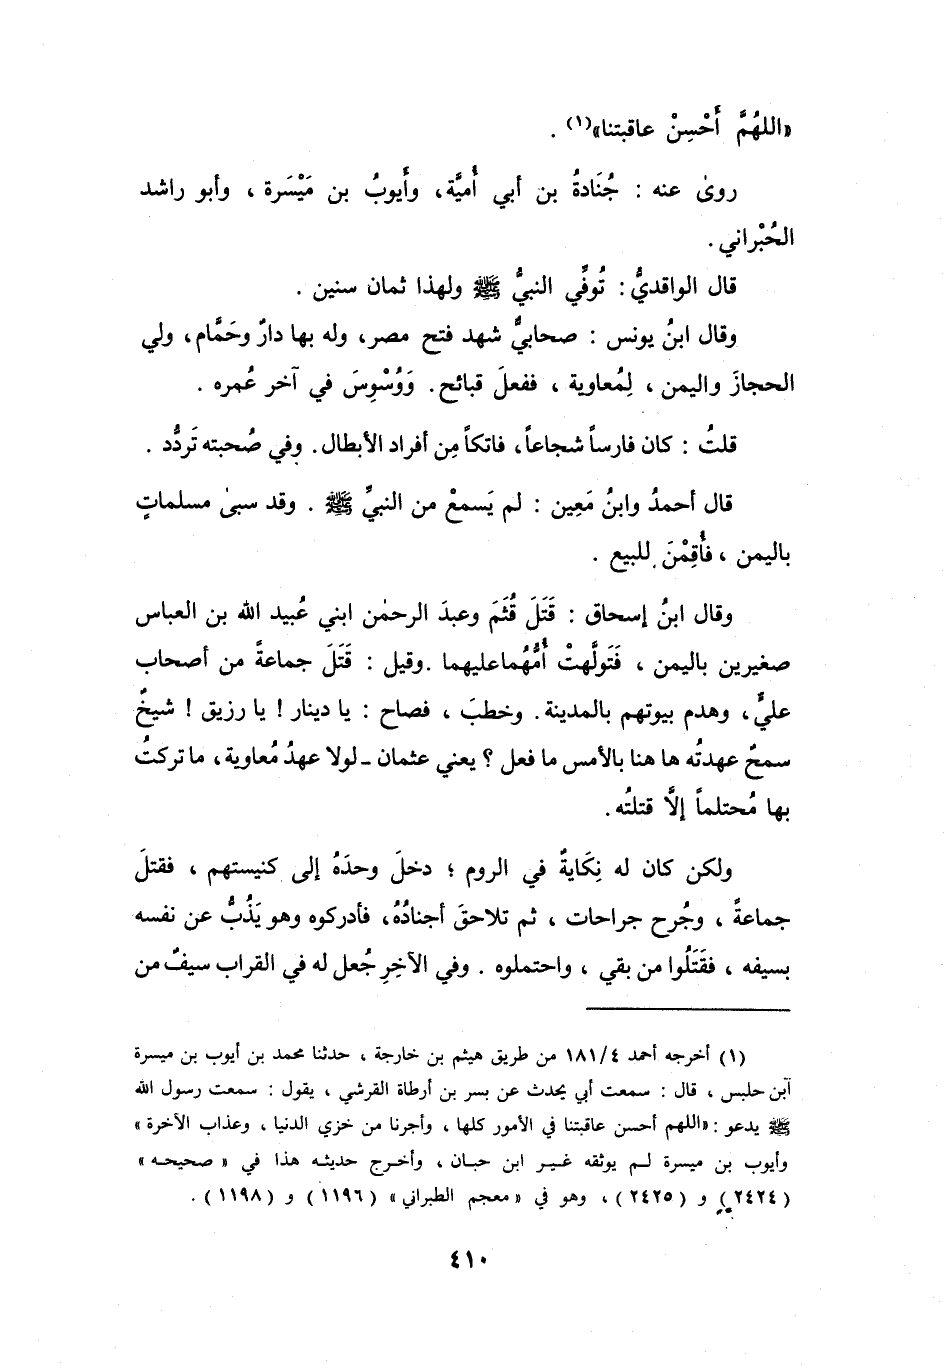 «اللهُمَّ أَحْسِنْ عاقبتنا»(١) .
روىٰ عنه : جُنَادةُ بن أبي أُميَّة، وأَيوبُ بن مَيْسَرة ، وأبو راشد
الحُبْراني.
قال الواقديُّ: تُوفِّي النبيُّ ﷺ ولهذا ثمان سنين .
وقال ابنُ يونس : صحابيٌّ شهد فتح مصر، وله بها دارٌ وحَمَّام، ولي
الحجازَ واليمن ، لِمُعاوية ، ففعلَ قبائح. وَوُسْوِسَ في آخر عُمره .
قلتُ : كان فارساً شجاعاً، فاتكاً مِن أفراد الأبطال. وفي صُحبته تَردُّد .
قال أحمدُ وابنُ مَعِين : لم يَسمعْ من النبيِّ ﷺ . وقد سبىٰ مسلماتٍ
باليمن ، فأُقِمْنَ للبيع .
وقال ابنُ إسحاق : قَتَلَ قُثَمَ وعبدَ الرحمٰن ابني عُبيد الله بن العباس
صغيرين باليمن ، فَتَولَّهتْ أُمُّهُما عليهما .وقيل : قَتَلَ جماعةً من أصحاب
عليٍّ، وهدم بيوتهم بالمدينة. وخطبَ ، فصاح : يا دينار ! يا رزيق ! شيخٌ
سمحٌ عهدتُه ها هنا بالأمس ما فعل ؟ يعني عثمان ـ لولا عهدُ مُعاوية، ما تركتُ
بها مُحتلماً إلَّا قتلتُه.
ولكن كان له نِكَايةٌ في الروم ؛ دخلَ وحدَهُ إلى كنيستهم ، فقتلَ
جماعةً ، وجُرح جراحات ، ثم تلاحقَ أجنادُهُ، فأدركوه وهو يَذُبُّ عن نفسه
بسيفه ، فقَتَلُوا من بقي ، واحتملوه . وفي الآخِرِ جُعل له في القراب سيفٌ من
(١) أخرجه أحمد ١٨١/٤ من طريق هيثم بن خارجة ، حدثنا محمد بن أيوب بن ميسرة
آبن حلبس ، قال : سمعت أبي يحدث عن بسر بن أرطاة القرشي ، يقول : سمعت رسول الله
ﷺ يدعو : «اللهم أحسن عاقبتنا في الأمور كلها ، وأجرنا من خزي الدنيا ، وعذاب الآخرة»
وأيوب بن ميسرة لم يوثقه غير ابن حبان ، وأخرج حديثه هذا في « صحيحه »
(٢٤٢٤) و (٢٤٢٥) ، وهو في «معجم الطبراني» (١١٩٦) و (١١٩٨) .
٤١٠